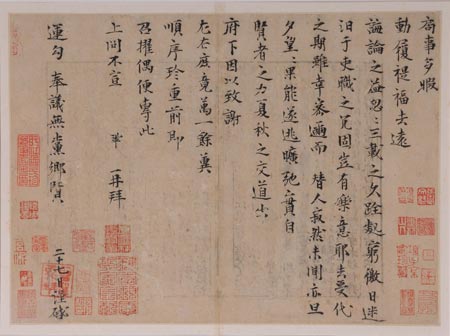 局事多暇
動履禔福去遠
誨論之益忽忽三載之久跧處窮徼日迷
汩于吏職之冗固豈有樂意耶去受代
之期雖幸密邇而 替人寂然未聞亦旦
夕望望果能遂逃曠弛實自
賢者之力夏秋之交道出
府下因以致謝
左右庶竟萬一餘冀
順序珍重前即
召擢偶便專此
上問不宣 鞏 再拜
運勾 奉議無黨鄉賢
二十七日謹啟